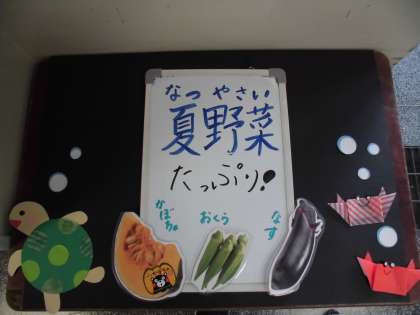 なつ やさい
夏野菜
たっぷり!
かぼちゃ
おくら
なす